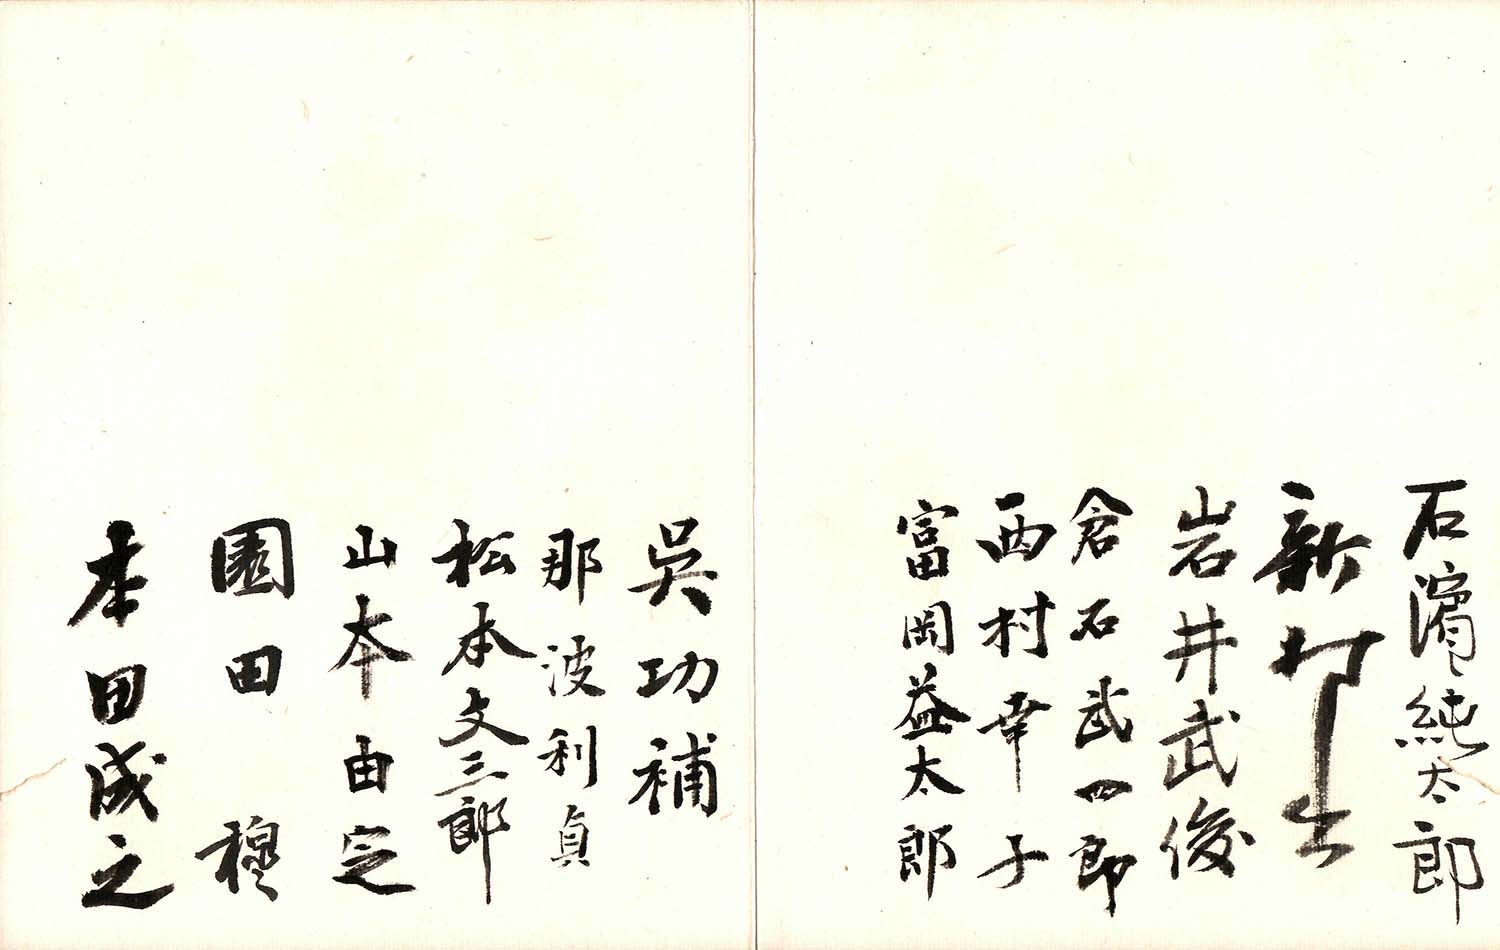 石濵純太郎
新村出
岩井武俊
倉石武四郎
西村幸子
富岡益太郎
吳功補
那波利貞
松本文三郎
山本由定
園田穆
本田成之